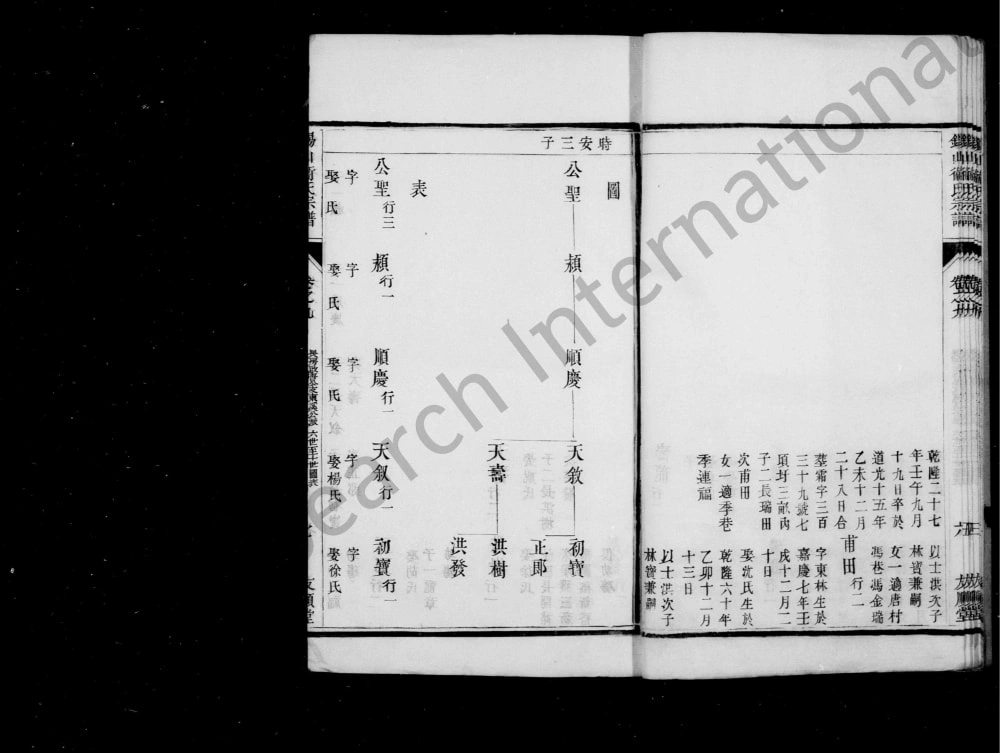 乾隆二十七
年壬午九月
十九日卒於
道光十五年
乙未十二月
二十八日合
塟霜字三百
三十九號七
項圩三畝內
子二長瑞田
次甫田
女一適季巷
季連福
以士洪次子
林寶兼嗣
女一適唐村
馮巷馮金瑞
甫田行二
字東林生於
嘉慶七年壬
戌十二月二
十日
娶沈氏生於
乾隆六十年
乙卯十二月
十三日
以士洪次子
林寶兼嗣
時安三子
圖
公聖
頫
順慶
天敘
初寶
正郎
天壽
洪樹
洪發
表
公聖行三
字
娶氏
頫行一
字
娶氏
順慶行一
字
娶氏
天敘行一
字
娶楊氏
初寶行一
字
娶徐氏
氏宗譜
卷之九
Search International